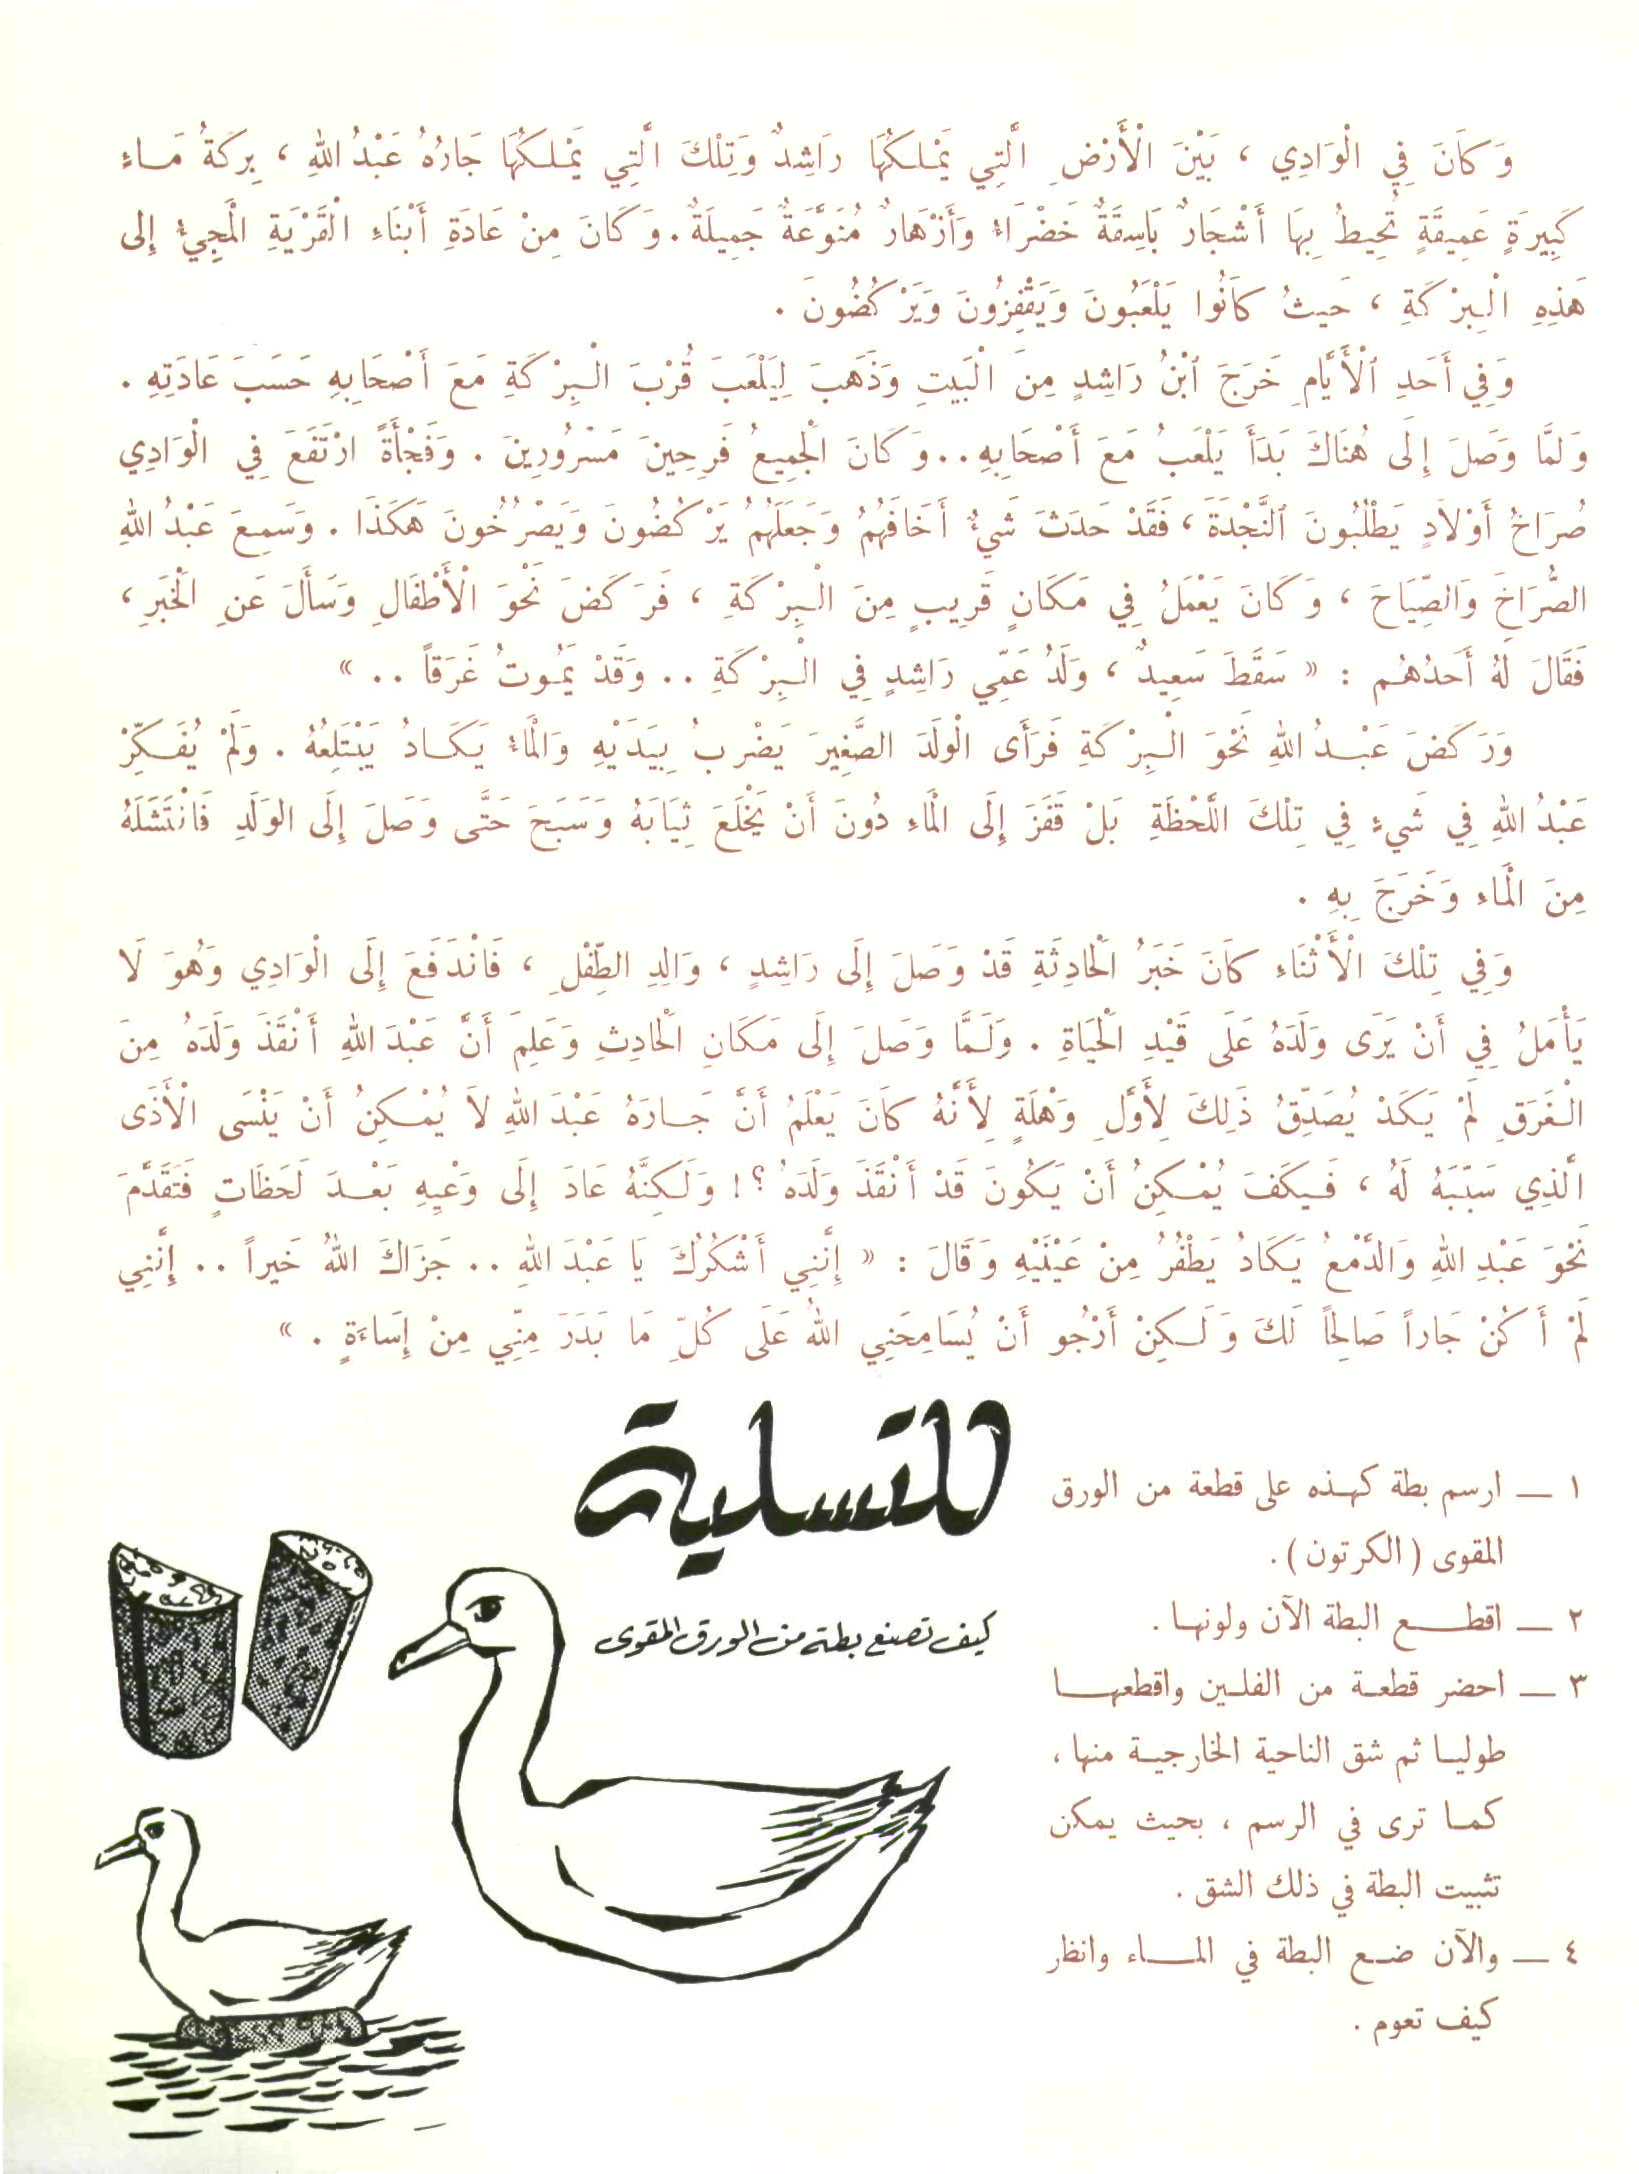 وَكَانَ فِي الْوَادِي ، بَيْنَ الْأَرْضِ الَّتِي يَمْلِكُهَا رَاشِدٌ وَتِلْكَ الَّتِي يَمْلِكُهَا جَارُهُ عَبْدُ اللهِ ، بِرْكَةُ مَاءٍ
كَبِيرَةٍ عَمِيقَةٍ تُحِيطُ بِهَا أَشْجَارٌ بَاسِقَةٌ خَضْرَاءُ وَأَزْهَارٌ مُنَوَّعَةٌ جَمِيلَةٌ . وَكَانَ مِنْ عَادَةِ أَبْنَاءِ الْقَرْيَةِ الْمَجِيءُ إِلى
هَذِهِ الْبِرْكَةِ ، حَيثُ كَانُوا يَلْعَبُونَ وَيَقْفِزُونَ وَيَرْكُضُونَ .
وَفِي أَحَدِ ٱلْأَيَّامِ خَرَجَ ٱبْنُ رَاشِدٍ مِنَ الْبَيتِ وَذَهَبَ لِيَلْعَبَ قُرْبَ الْبِرْكَةِ مَعَ أَصْحَابِهِ حَسَبَ عَادَتِهِ .
وَلَمَّا وَصَلَ إِلَى هُنَاكَ بَدَأَ يَلْعَبُ مَعَ أَصْحَابِهِ .. وَكَانَ الْجَمِيعُ فَرِحِينَ مَسْرُورِينَ . وَفَجْأَةً ارْتَفَعَ فِي الْوَادِي
صُرَاخُ أَوْلَادٍ يَطْلُبُونَ ٱلنَّجْدَةَ ، فَقَدْ حَدَثَ شَيْءٌ أَخَافَهُمْ وَجَعَلَهُمْ يَرْكُضُونَ وَيَصْرُخُونَ هَكَذَا . وَسَمِعَ عَبْدُ اللهِ
الصُّرَاخَ وَالصِّيَاحَ ، وَكَانَ يَعْمَلُ فِي مَكَانٍ قَرِيبٍ مِنَ الْبِرْكَةِ ، فَرَكَضَ نَحْوَ الْأَطْفَالِ وَسَأَلَ عَنِ الْخَبَرِ ،
فَقَالَ لَهُ أَحَدُهُم : « سَقَطَ سَعِيدٌ ، وَلَدُ عَمِّي رَاشِدٍ فِي الْبِرْكَةِ .. وَقَدْ يَمُوتُ غَرَقاً .. »
وَرَكَضَ عَبْدُ اللهِ نَحْوَ الْبِرْكَةِ فَرَأَى الْوَلَدَ الصَّغِيرَ يَضْرِبُ بِيَدَيْهِ وَالْمَاءُ يَكَادُ يَبْتَلِعُهُ . وَلَمْ يُفَكِّرْ
عَبْدُ اللهِ فِي شَيءٍ فِي تِلْكَ اللَّحْظَةِ بَلْ قَفَزَ إِلَى الْمَاءِ دُونَ أَنْ يَخْلَعَ ثِيَابَهُ وَسَبَحَ حَتَّى وَصَلَ إِلَى الوَلَدِ فَانْتَشَلَهُ
مِنَ الْمَاءِ وَخَرَجَ بِهِ .
وَفِي تِلْكَ الْأَثْنَاءِ كَانَ خَبَرُ الْحَادِثَةِ قَدْ وَصَلَ إِلَى رَاشِدٍ ، وَالِدِ الطِّفْلِ ، فَانْدَفَعَ إِلَى الْوَادِي وَهُوَ لَا
يَأْمَلُ فِي أَنْ يَرَى وَلَدَهُ عَلَى قَيْدِ الْحَيَاةِ . وَلَمَّا وَصَلَ إِلَى مَكَانِ الْحَادِثِ وَعَلِمَ أَنَّ عَبْدَ اللهِ أَنْقَذَ وَلَدَهُ مِنَ
الْغَرَقِ لَمْ يَكَدْ يُصَدِّقُ ذَلِكَ لِأَوَّلِ وَهْلَةٍ لِأَنَّهُ كَانَ يَعْلَمُ أَنَّ جَارَهُ عَبْدَ اللهِ لاَ يُمْكِنُ أَنْ يَنْسَى الْأَذَى
الَّذِي سَبَّبَهُ لَهُ ، فَيكَفَ يُمْكِنُ أَنْ يَكُونَ قَدْ أَنْقَذَ وَلَدَهُ ؟ ! وَلَكِنَّهُ عَادَ إِلَى وَعْيِهِ بَعْدَ لَحَظَاتٍ فَتَقَدَّمَ
نَحْوَ عَبْدِ اللهِ وَالدَّمْعُ يَكَادُ يَطْفُرُ مِنْ عَيْنَيْهِ وَقَالَ : « إِنَّنِي أَشْكُرُكَ يَا عَبْدَ اللهِ .. جَزَاكَ اللهُ خَيراً .. إِنَّنِي
لَمْ أَكُنْ جَاراً صَالِحاً لَكَ وَلَكِنْ أَرْجُو أَنْ يُسَامِحَنِي اللهُ عَلَى كُلِّ مَا بَدَرَ مِنِّي مِنْ إِسَاءَةٍ . »
للتسلية
كيف تصنع بطة من الورق المقوى
١ — ارسم بطة كهذه على قطعة من الورق
المقوى ( الكرتون ) .
٢ — اقطع البطة الآن ولونها .
٣ — احضر قطعة من الفلين واقطعها
طوليا ثم شق الناحية الخارجية منها ،
كما ترى في الرسم ، بحيث يمكن
تثبيت البطة في ذلك الشق .
٤ — والآن ضع البطة في الماء وانظر
كيف تعوم .